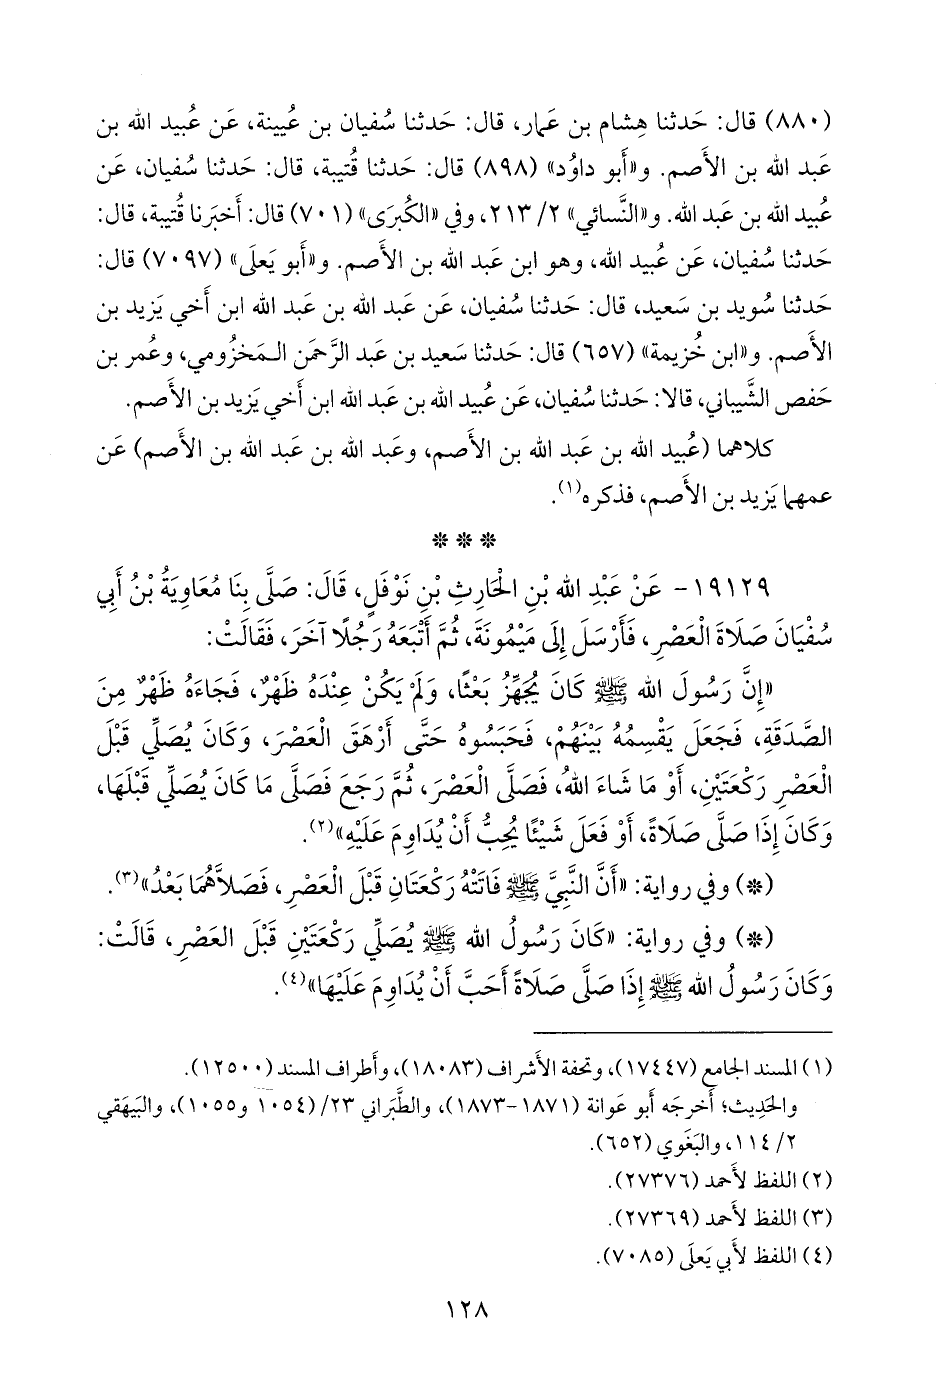 (٨٨٠) قال: حَدثنا هِشام بن عَمار، قال: حَدثنا سُفيان بن عُيينة، عَن عُبيد الله بن
عَبد الله بن الأَصم. و«أَبو داوُد» (٨٩٨) قال: حَدثنا قُتيبة، قال: حَدثنا سُفيان، عَن
عُبيد الله بن عَبد الله. و«النَّسائي» ٢/ ٢١٣، وفي «الكُبرَى» (٧٠١) قال: أَخبَرنا قُتيبة، قال:
حَدثنا سُفيان، عَن عُبيد الله، وهو ابن عَبد الله بن الأَصم. و«أَبو يَعلَى» (٧٠٩٧) قال:
حَدثنا سُويد بن سَعيد، قال: حَدثنا سُفيان، عَن عَبد الله بن عَبد الله ابن أَخي يَزيد بن
الأَصم. و«ابن خُزيمة» (٦٥٧) قال: حَدثنا سَعيد بن عَبد الرَّحمَن الـمَخزُومي، وعُمر بن
حَفص الشَّيباني، قالا: حَدثنا سُفيان، عَن عُبيد الله بن عَبد الله ابن أَخي يَزيد بن الأَصم.
كلاهما (عُبيد الله بن عَبد الله بن الأَصم، وعَبد الله بن عَبد الله بن الأَصم) عَن
عمهما يَزيد بن الأَصم، فذكره(١).
* * *
١٩١٢٩ - عَنْ عَبْدِ الله بْنِ الْحَارِثِ بْنِ نَوْفَلٍ، قَالَ: صَلَّى بِنَا مُعَاوِيَةُ بْنُ أَبِي
سُفْيَانَ صَلَاةَ الْعَصْرِ، فَأَرْسَلَ إِلَى مَيْمُونَةَ، ثُمَّ أَتْبَعَهُ رَجُلًا آخَرَ، فَقَالَتْ:
«إِنَّ رَسُولَ الله ﷺ كَانَ يُجَهِّزُ بَعْثًا، وَلَمْ يَكُنْ عِنْدَهُ ظَهْرٌ، فَجَاءَهُ ظَهْرٌ مِنَ
الصَّدَقَةِ، فَجَعَلَ يَقْسِمُهُ بَيْنَهُمْ، فَحَبَسُوهُ حَتَّى أَرْهَقَ الْعَصْرَ، وَكَانَ يُصَلِّي قَبْلَ
الْعَصْرِ رَكْعَتَيْنِ، أَوْ مَا شَاءَ اللهُ، فَصَلَّى الْعَصْرَ، ثُمَّ رَجَعَ فَصَلَّى مَا كَانَ يُصَلِّي قَبْلَهَا،
وَكَانَ إِذَا صَلَّى صَلَاةً، أَوْ فَعَلَ شَيْئًا يُحِبُّ أَنْ يُدَاوِمَ عَلَيْهِ»(٢).
(*) وفي رواية: «أَنَّ النَّبِيَّ ﷺ فَاتَتْهُ رَكْعَتَانِ قَبْلَ الْعَصْرِ، فَصَلَّاهُمَا بَعْدُ»(٣).
(*) وفي رواية: «كَانَ رَسُولُ الله ﷺ يُصَلِّي رَكْعَتَيْنِ قَبْلَ العَصْرِ، قَالَتْ:
وَكَانَ رَسُولُ الله ﷺ إِذَا صَلَّى صَلَاةً أَحَبَّ أَنْ يُدَاوِمَ عَلَيْهَا»(٤).
(١) المسند الجامع (١٧٤٤٧)، وتحفة الأَشراف (١٨٠٨٣)، وأَطراف المسند (١٢٥٠٠).
والحَدِيث؛ أَخرجَه أَبو عَوانة (١٨٧١-١٨٧٣)، والطَّبَراني ٢٣/ (١٠٥٤ و١٠٥٥)، والبَيهَقي
٢/ ١١٤، والبَغَوي (٦٥٢).
(٢) اللفظ لأَحمد (٢٧٣٧٦).
(٣) اللفظ لأَحمد (٢٧٣٦٩).
(٤) اللفظ لأَبي يَعلَى (٧٠٨٥).
١٢٨